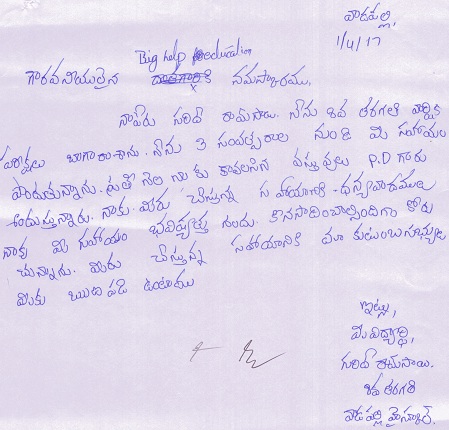 వాడపల్లి,
1/4/17
Big help education
గౌరవనీయులైన కి నమస్కారము,
నాపేరు గరిదె రామసాయి. నేను 8వ తరగతి వార్షిక
పరీక్షలు బాగా రాశాను. నేను 3 సంవత్సరాల నుండి మీ సహాయం
పొందుతున్నాను. ప్రతి నెల నాకు కావలసిన వస్తువులు P.D గారు
అందిస్తున్నారు. నాకు మీరు చేస్తున్న సహాయానికి ధన్యవాదములు
నాకు మీ సహాయం భవిష్యత్తు నందు కొనసాగించాల్సిందిగా కోరు
చున్నాను. మీరు చేస్తున్న సహాయానికి మా కుటుంబసభ్యులు
మీకు ఋణపడి ఉంటాము
ఇట్లు,
మీ విద్యార్థి,
గరిదె రామసాయి.
8వ తరగతి
వాడపల్లి హైస్కూల్.